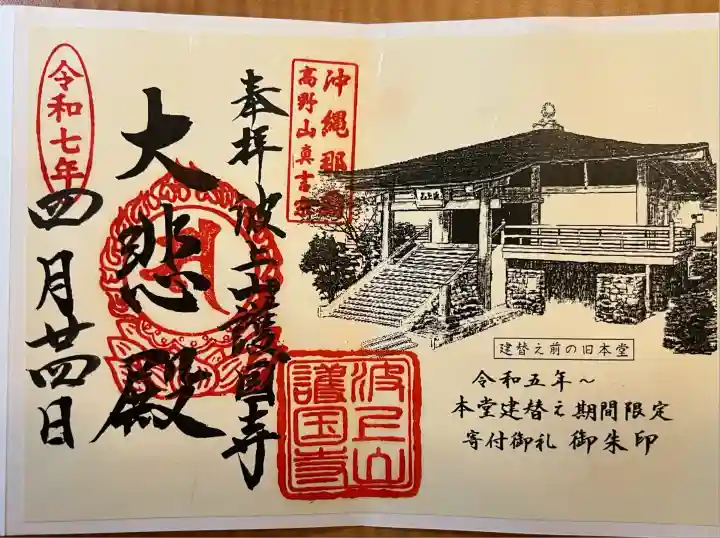 沖縄那覇
高野山真言宗
奉拝 波上山護国寺
大悲殿
令和七年
四月廿四日
波上山
護国寺
建替え前の旧本堂
令和五年～
本堂建替え期間限定
寄付御礼 御朱印